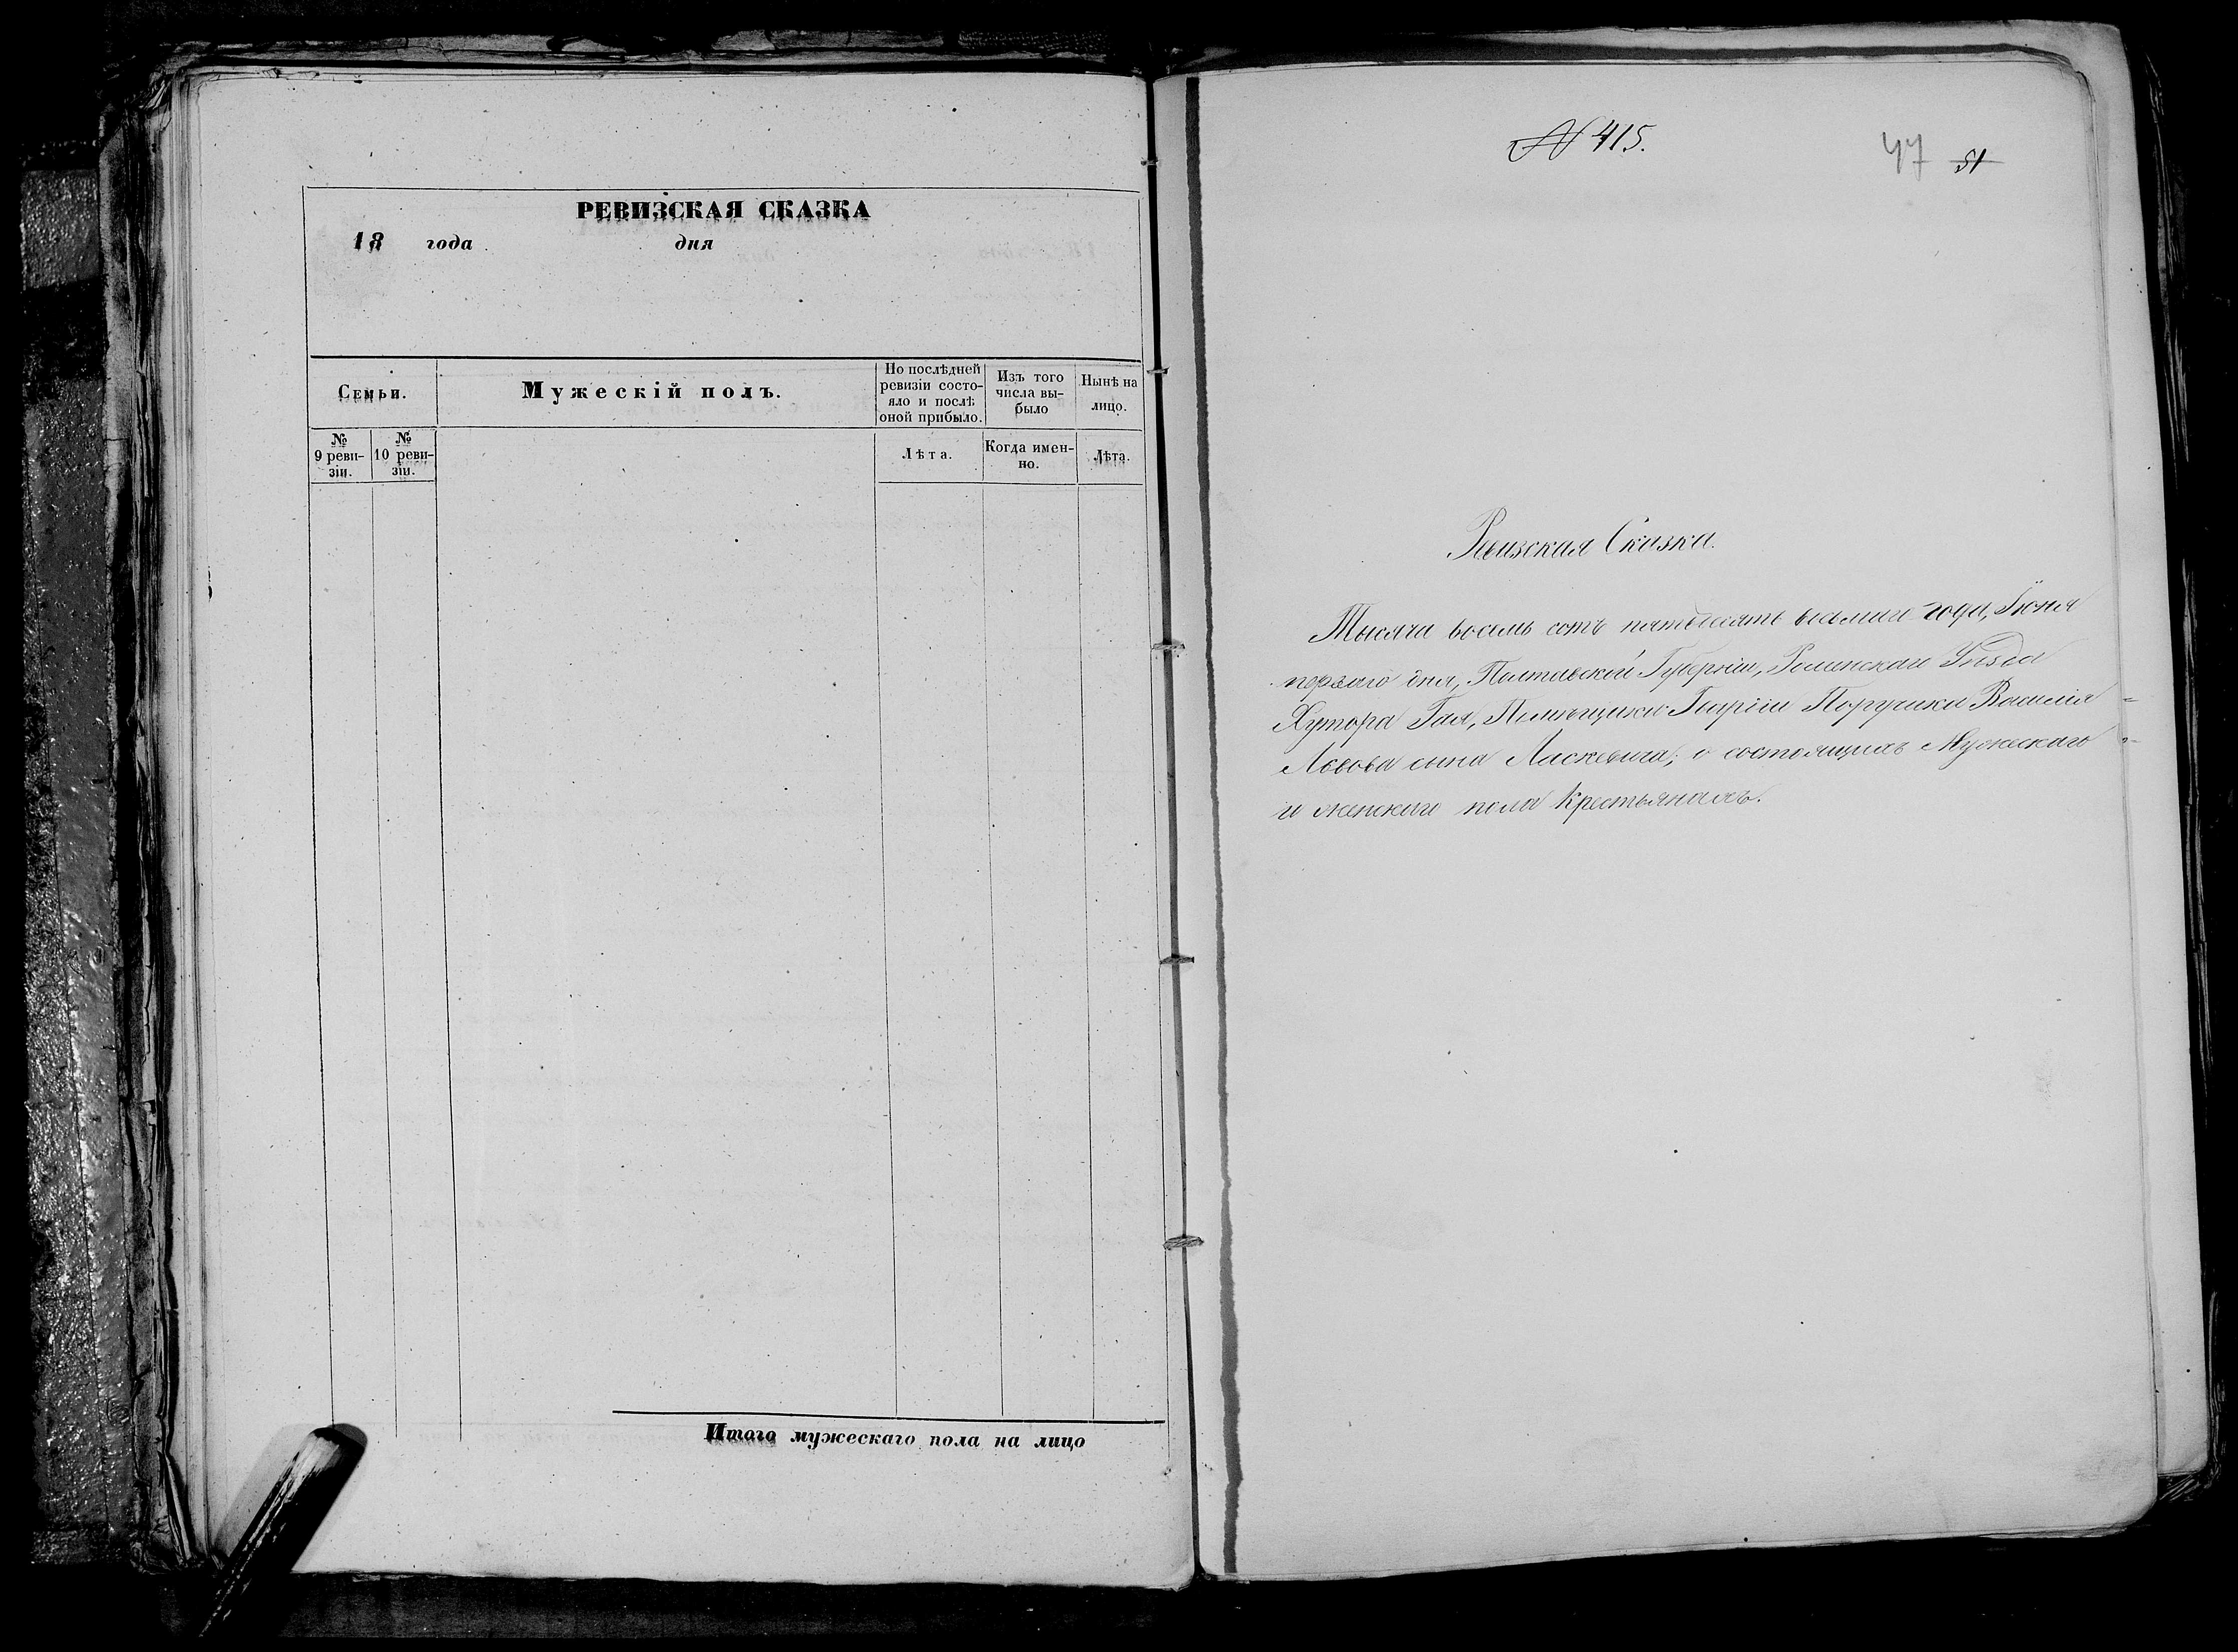 РЕВИЗСКАЯ СКАЗКА
18 года дня
Семьи.
Мужескій полъ.
По послѣдней ревизіи состо-
яло и послѣ оной прибыло.
Изъ того числа вы-
было
Нынѣ на лицо.
№ 9 реви-
зіи.
№ 10 реви-
зіи.
Лѣта.
Когда имен-
но.
Лѣта.
Итого мужескаго пола на лицо
№ 415.
47 51
Ревизская Сказка.
Тысяча восемь сотъ пятьдесятъ восьмаго года, Іюня
перваго дня, Полтавской Губерніи, Роменскаго Уѣзда
Хутора Гая, Помѣщика Поручика Василія
Львова сына Ласкевича, о состоящихъ Мужескаго
и женскаго пола крестьянахъ.